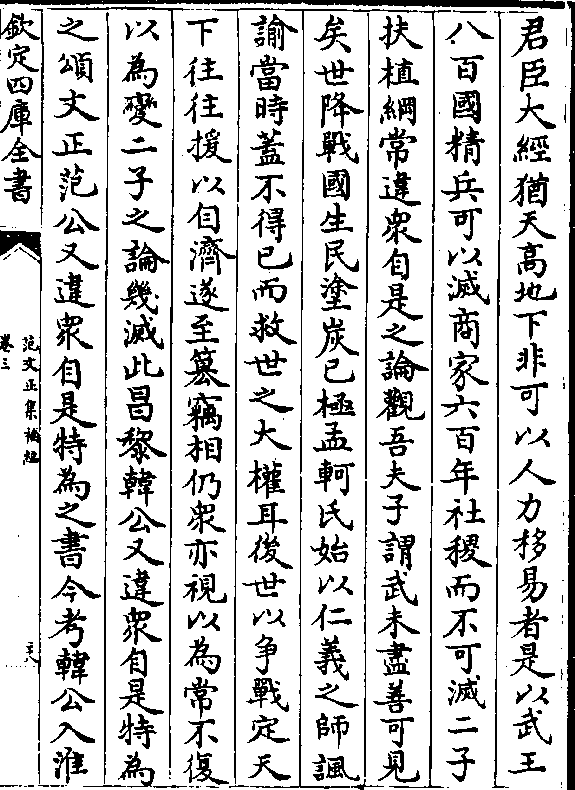 君臣大經猶天高地下非可以人力移易者是以武王
八百國精兵可以滅商家六百年社稷而不可滅二子
扶植綱常違衆自是之論觀吾夫子謂武未盡善可見
矣世降戰國生民塗炭已極孟軻氏始以仁義之師諷
諭當時蓋不得已而救世之大權耳後世以爭戰定天
下往往援以自濟遂至篡竊相仍衆亦視以為常不復
以為變二子之論幾滅此昌黎韓公又違衆自是特為
之頌文正范公又違衆自是特為之書今考韓公入淮
欽定四庫全書
范文正集補編
卷三
六